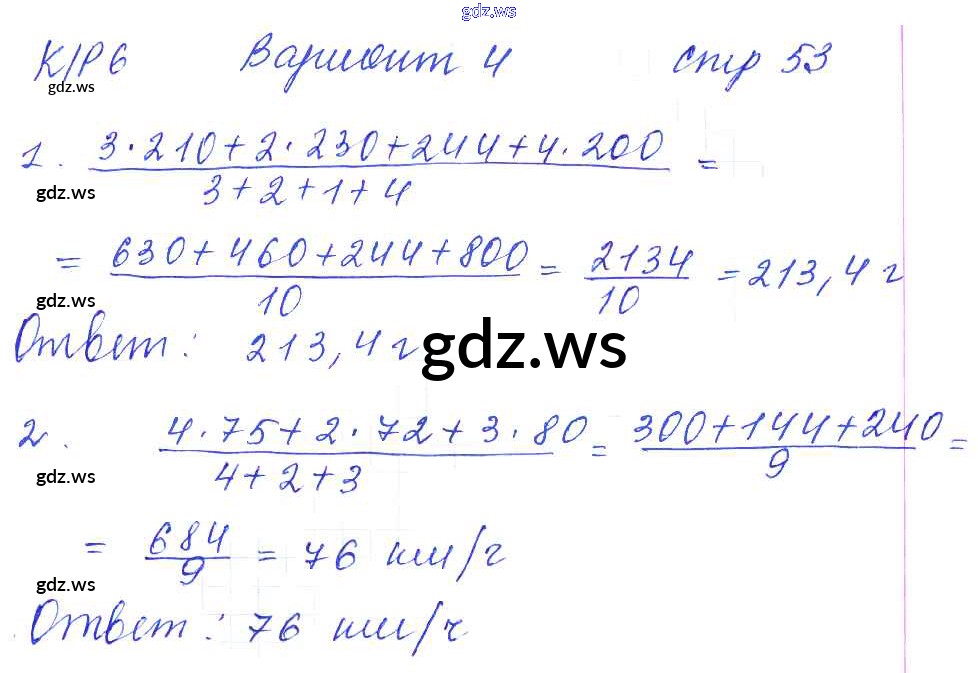 gdz.ws
К/Р 6 Вариант 4 стр 53
gdz.ws
1. (3·210+2·230+244+4·200)/(3+2+1+4) =
gdz.ws
= (630+460+244+800)/10 = 2134/10 = 213,4 г
gdz.ws
Ответ: 213,4 г
gdz.ws
2. (4·75+2·72+3·80)/(4+2+3) = (300+144+240)/9 =
gdz.ws
= 684/9 = 76 км/г
gdz.ws
Ответ: 76 км/ч